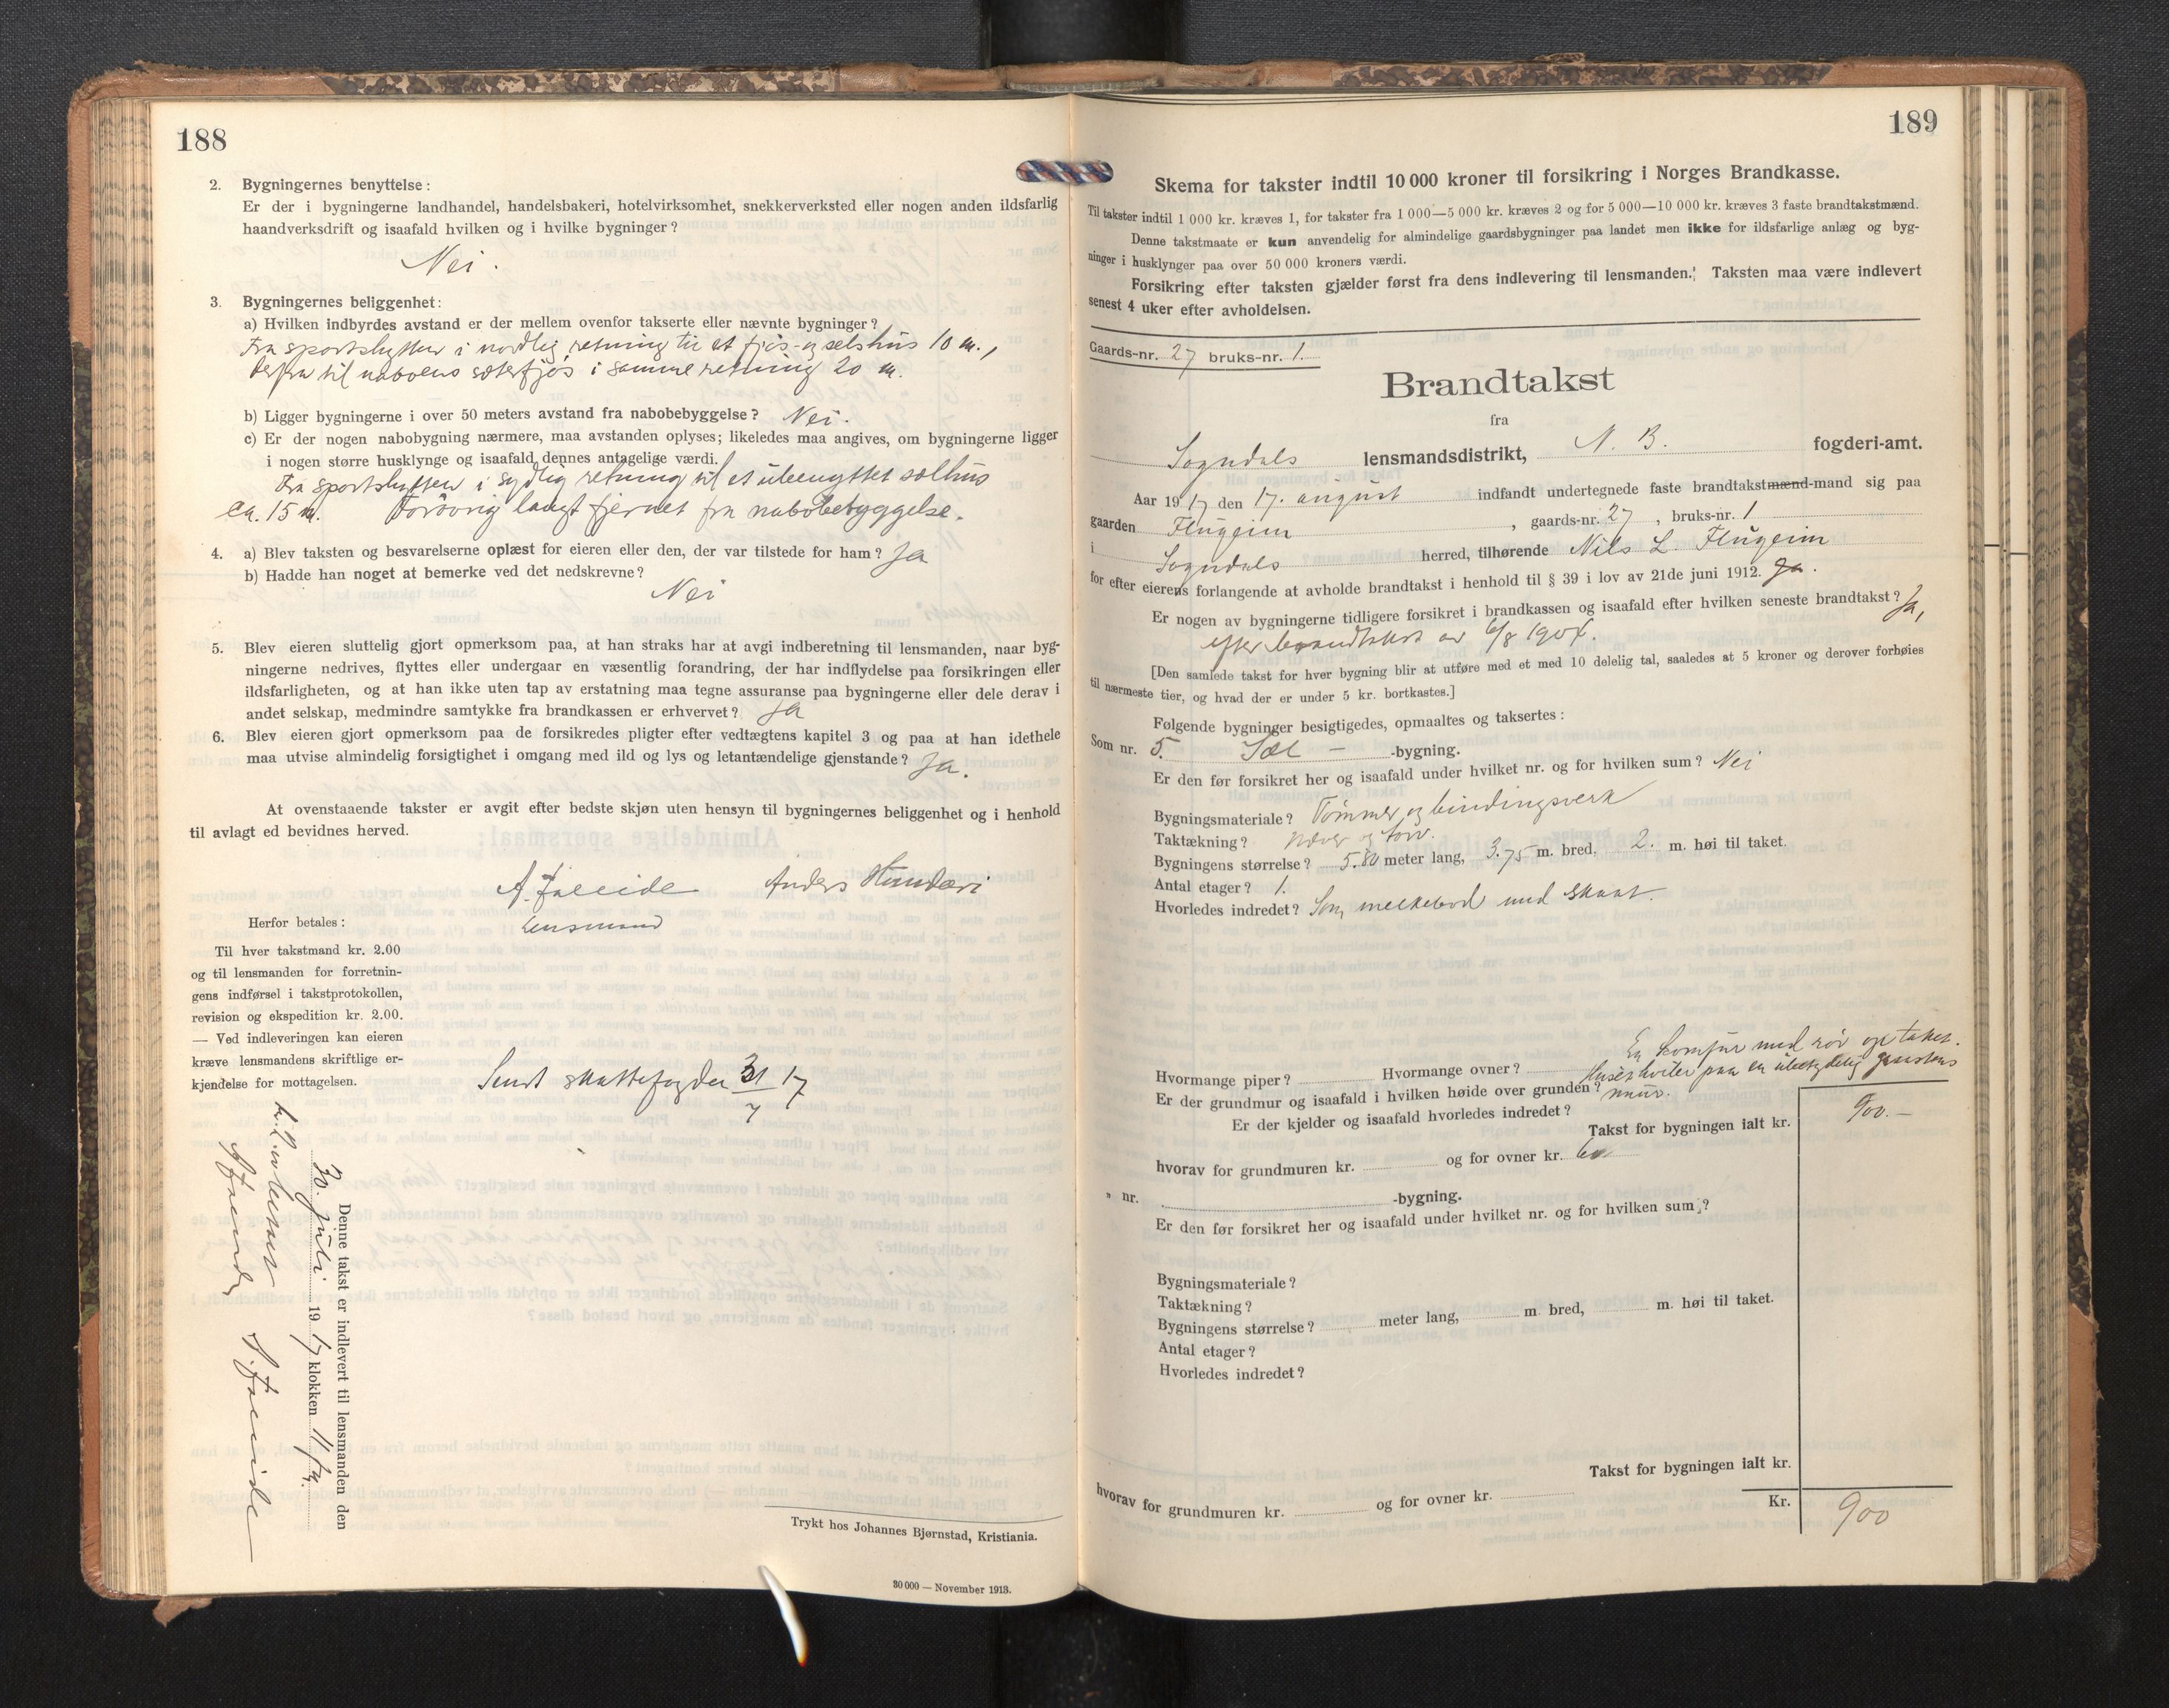 188
2. Bygningernes benyttelse:
Er der i bygningerne landhandel, handelsbakeri, hotelvirksomhet, snekkerverksted eller nogen anden ildsfarlig
haandverksdrift og isaafald hvilken og i hvilke bygninger?
Nei.
3. Bygningernes beliggenhet:
a) Hvilken indbyrdes avstand er der mellem ovenfor takserte eller nævnte bygninger?
Fra sportshytten i nordlig retning til et fjøs- og selshus 10 m.,
derfra til naboens sæterfjøs i samme retning 20 m.
b) Ligger bygningerne i over 50 meters avstand fra nabobebyggelse? Nei.
c) Er der nogen nabobygning nærmere, maa avstanden oplyses; likeledes maa angives, om bygningerne ligger
i nogen større husklynge og isaafald dennes antagelige værdi.
Fra sportshytten i sydlig retning til et ubenyttet sælhus
ca. 15 m. Forøvrig langt fjernet fra nabobebyggelse.
4. a) Blev taksten og besvarelserne oplæst for eieren eller den, der var tilstede for ham? Ja
b) Hadde han noget at bemerke ved det nedskrevne?
Nei
5. Blev eieren sluttelig gjort opmerksom paa, at han straks har at avgi indberetning til lensmanden, naar byg-
ningerne nedrives, flyttes eller undergaar en væsentlig forandring, der har indflydelse paa forsikringen eller
ildsfarligheten, og at han ikke uten tap av erstatning maa tegne assuranse paa bygningerne eller dele derav i
andet selskap, medmindre samtykke fra brandkassen er erhvervet? Ja
6. Blev eieren gjort opmerksom paa de forsikredes pligter efter vedtægtens kapitel 3 og paa at han idethele
maa utvise almindelig forsigtighet i omgang med ild og lys og letantændelige gjenstande? Ja.
At ovenstaaende takster er avgit efter bedste skjøn uten hensyn til bygningernes beliggenhet og i henhold
til avlagt ed bevidnes herved.
A. Faleide Anders Hundere
lensmand
Herfor betales:
Til hver takstmand kr. 2.00
og til lensmanden for forretnin-
gens indførsel i takstprotokollen,
revision og ekspedition kr. 2.00.
— Ved indleveringen kan eieren
kræve lensmandens skriftlige er-
kjendelse for mottagelsen.
Sendt skattefogden 31/7 17
Denne takst er indlevert til lensmanden den
30. juli 1917 klokken 11 fm.
A. Faleide
Trykt hos Johannes Bjørnstad, Kristiania.
30 000 — November 1913.
189
Skema for takster indtil 10 000 kroner til forsikring i Norges Brandkasse.
Til takster indtil 1 000 kr. kræves 1, for takster fra 1 000—5 000 kr. kræves 2 og for 5 000—10 000 kr. kræves 3 faste brandtakstmænd.
Denne takstmaate er kun anvendelig for almindelige gaardsbygninger paa landet men ikke for ildsfarlige anlæg og byg-
ninger i husklynger paa over 50 000 kroners værdi.
Forsikring efter taksten gjælder først fra dens indlevering til lensmanden. Taksten maa være indlevert
senest 4 uker efter avholdelsen.
Gaards-nr. 27 bruks-nr. 1.
Brandtakst
fra
Sogndals lensmandsdistrikt, N. B. fogderi-amt.
Aar 1917 den 17. august indfandt undertegnede faste brandtakstmænd-mand sig paa
gaarden Flugeim, gaards-nr. 27, bruks-nr. 1
i Sogndals herred, tilhørende Nils L. Flugeim
for efter eierens forlangende at avholde brandtakst i henhold til § 39 i lov av 21de juni 1912. Ja.
Er nogen av bygningerne tidligere forsikret i brandkassen og isaafald efter hvilken seneste brandtakst? Ja,
efter brandtakst av 6/8 1907.
[Den samlede takst for hver bygning blir at utføre med et med 10 delelig tal, saaledes at 5 kroner og derover forhøies
til nærmeste tier, og hvad der er under 5 kr. bortkastes.]
Følgende bygninger besigtigedes, opmaaltes og taksertes:
Som nr. 5. Sæl — -bygning.
Er den før forsikret her og isaafald under hvilket nr. og for hvilken sum? Nei
Bygningsmateriale? Tømmer og bindingsverk
Taktækning? Næver og torv.
Bygningens størrelse? 5.80 meter lang, 3.75 m. bred, 2. m. høi til taket.
Antal etager? 1.
Hvorledes indredet? Som melkebod med skaat.
En komfur med rør op taket.
Hvormange piper? Hvormange ovner?
Huset hviler paa en ubetydelig graastens
Er der grundmur og isaafald i hvilken høide over grunden? mur.
Er der kjelder og isaafald hvorledes indredet?
Takst for bygningen ialt kr. 900.—
hvorav for grundmuren kr. og for ovner kr. 60
" nr. -bygning.
Er den før forsikret her og isaafald under hvilket nr. og for hvilken sum?
Bygningsmateriale?
Taktækning?
Bygningens størrelse? meter lang, m. bred, m. høi til taket.
Antal etager?
Hvorledes indredet?
Takst for bygningen ialt kr.
hvorav for grundmuren kr. og for ovner kr.
Kr. 900